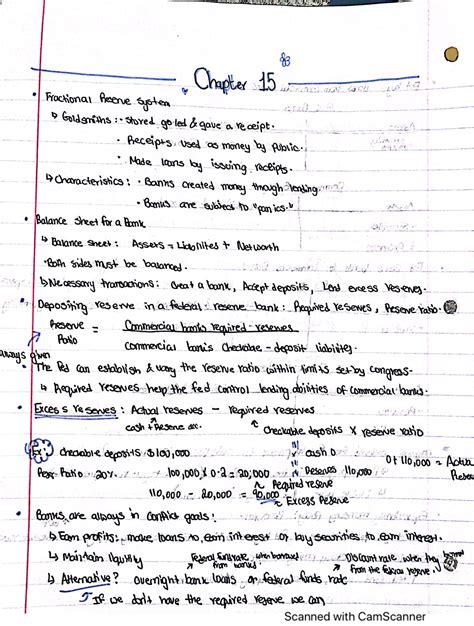 Chapter 15
• Fractional Reserve System
↳ Goldsmiths: - stored gold & gave a receipt.
• Receipts used as money by public.
• Made loans by issuing receipts.
↳ Characteristics: • Banks created money through lending.
• Banks are subject to "panics."
• Balance sheet for a Bank
↳ Balance sheet: Assets = Liabilites + Networth
• Both sides must be balanced.
↳ Necessary transactions: Creat a bank, Accept deposits, Lend excess reserves.
• Depositing reserve in a federal reserve bank: Required reserves, Reserve ratio
Reserve Ratio = Commercial banks required reserves
commercial banks checkable-deposit liabilities.
always given
• The Fed can establish & vary the reserve ratio within limits set by congress.
↳ Required reserves help the fed control lending abilities of commercial banks.
• Excess reserves: Actual reserves - required reserves
cash + Reserve acc. checkable deposits x reserve ratio
Ex: Checkable deposits $100,000 cash 0 0+110,000 =
Ratio 20% 100,000 x 0.2 = 20,000 Reserves 110,000
Required reserve
110,000 - 20,000 = 90,000 Excess Reserve
• Banks are always in conflict goals:
↳ Earn profits: make loans to earn interest or buy securities to earn interest.
↳ Maintain liquitiy Federal funds rate when borrowed from banks. Discount rate when they borrow from the federal reserve.
↳ Alternative? overnight bank loans or federal funds rate
↳ If we don't have the required reserve we can
Scanned with CamScanner